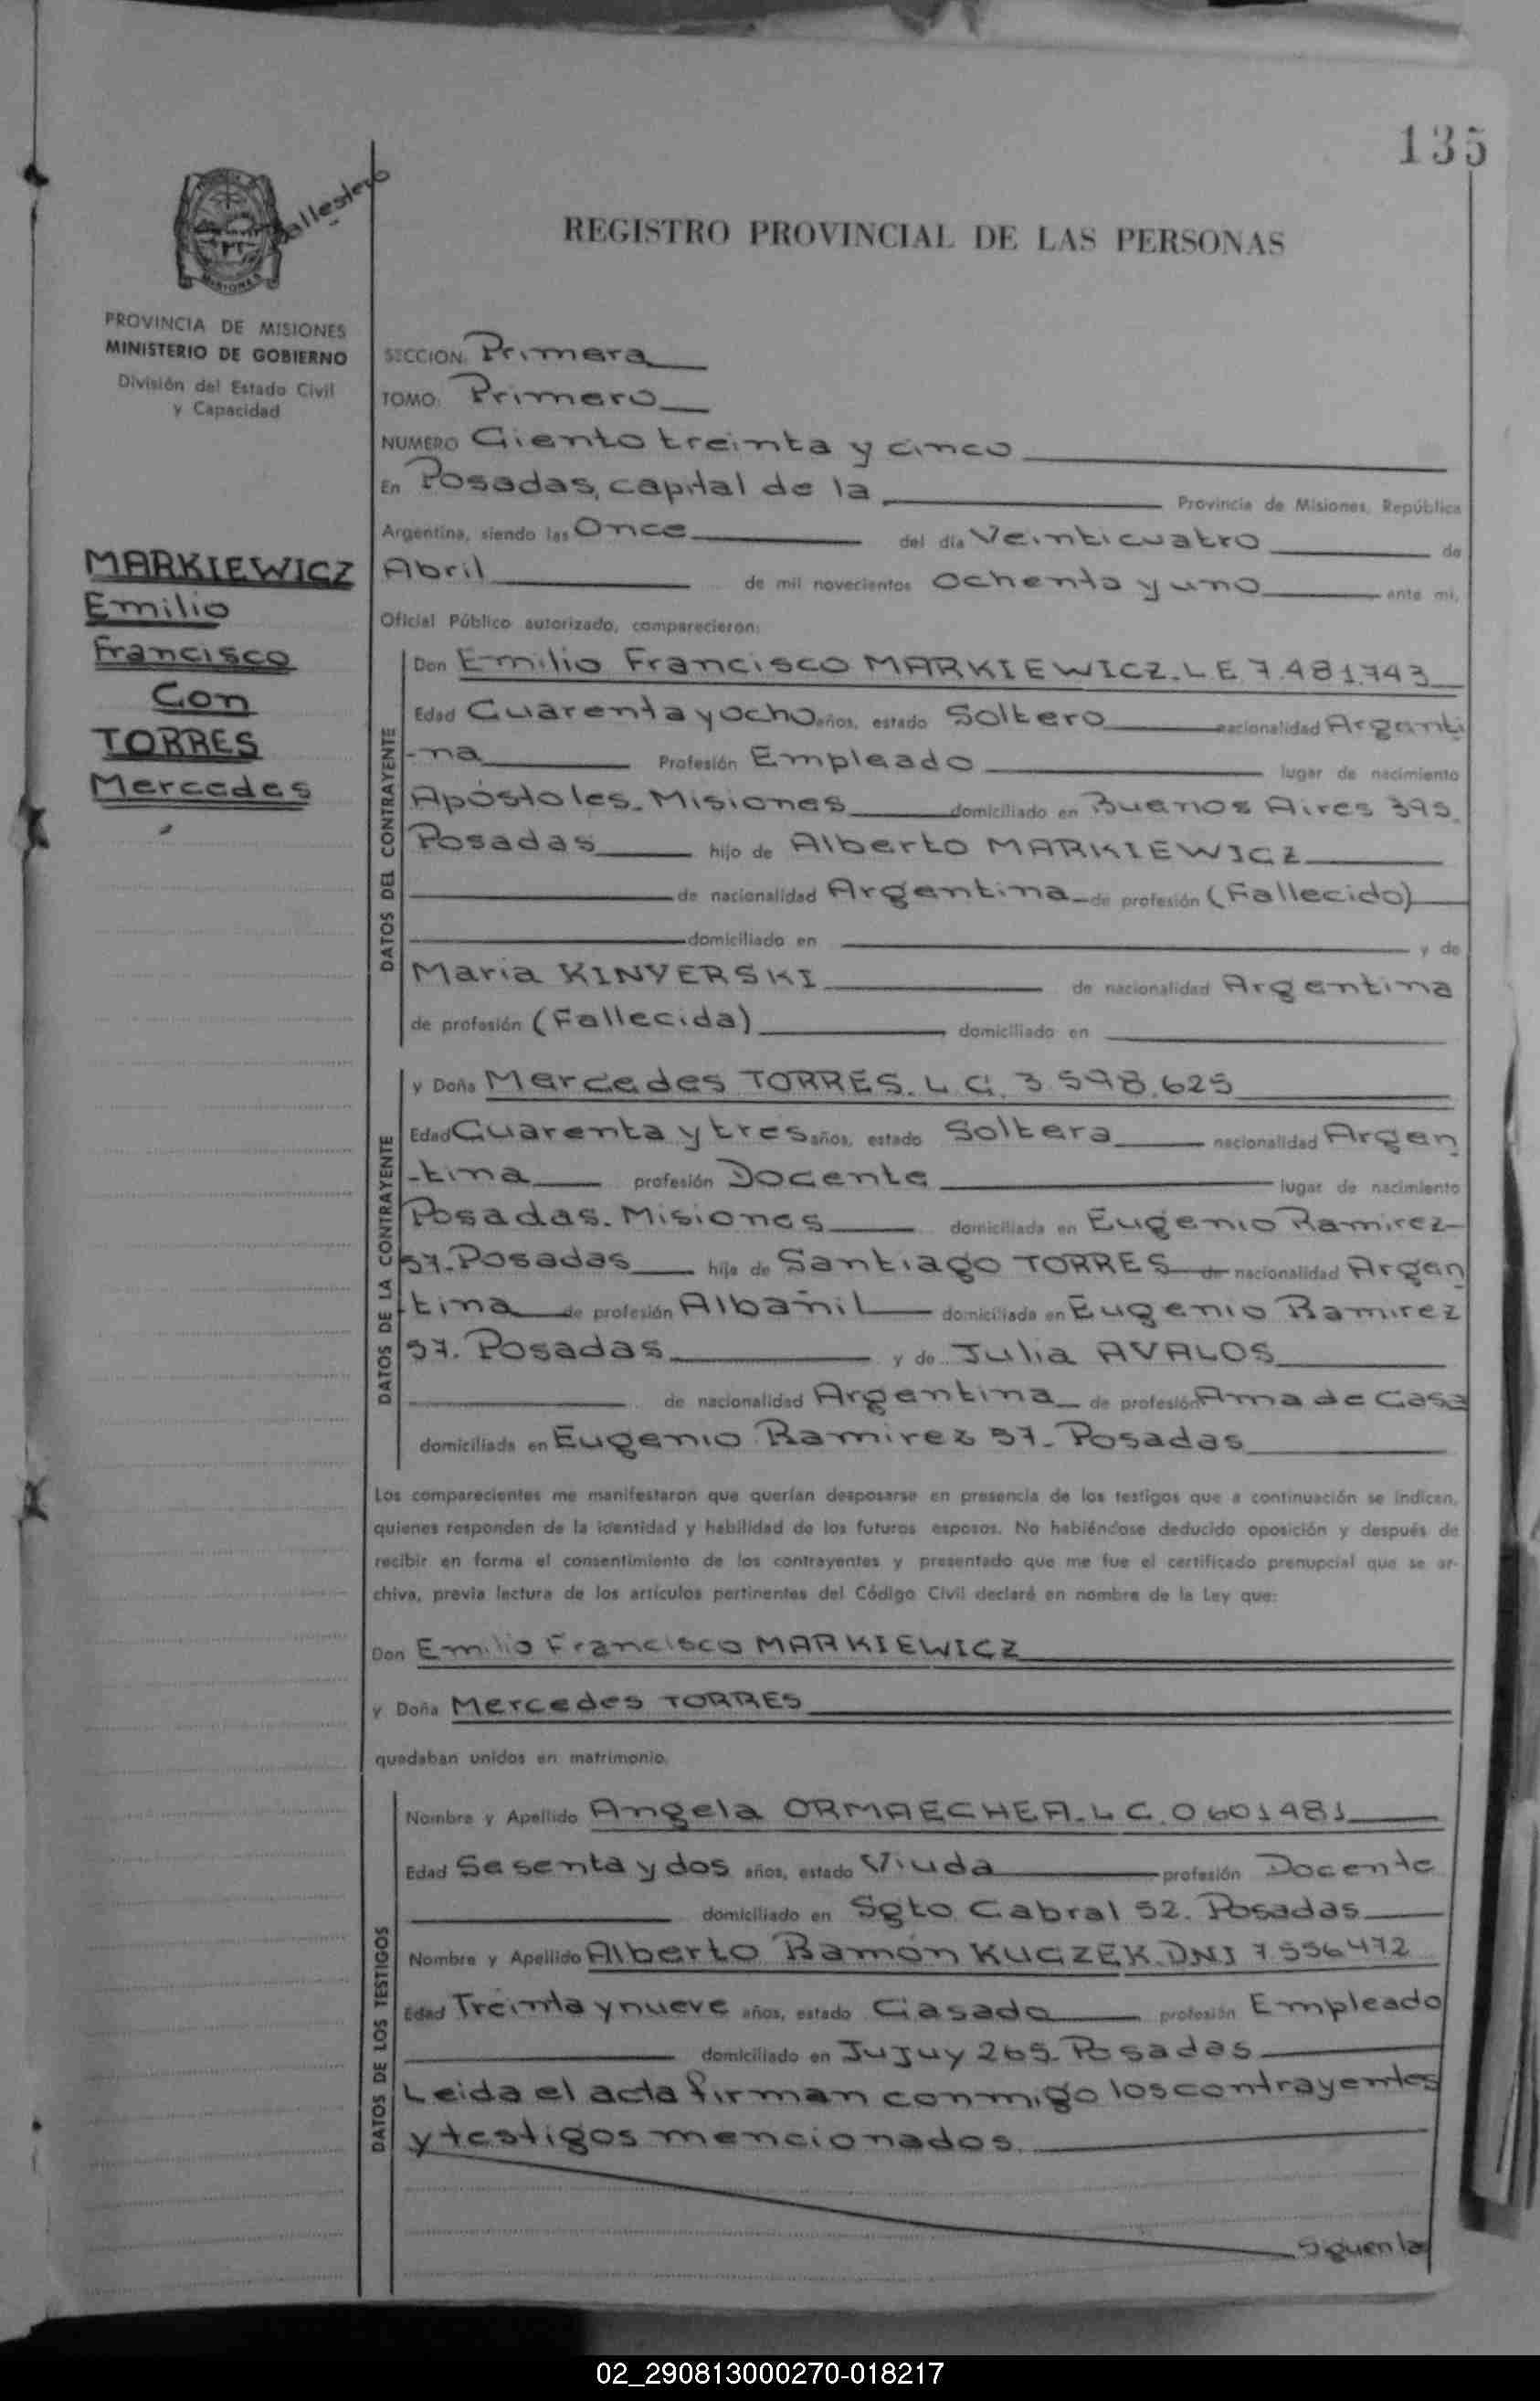 135
Ballestero
MISIONES
REGISTRO PROVINCIAL DE LAS PERSONAS
PROVINCIA DE MISIONES
MINISTERIO DE GOBIERNO
División del Estado Civil
y Capacidad
SECCION: Primera
TOMO: Primero
NUMERO Ciento treinta y cinco
En Posadas, capital de la Provincia de Misiones, República
Argentina, siendo las Once del día Veinticuatro de
Abril de mil novecientos Ochenta y uno ante mi,
Oficial Público autorizado, comparecieron:
MARKIEWICZ
Emilio
Francisco
Con
TORRES
Mercedes
DATOS DEL CONTRAYENTE
Don Emilio Francisco MARKIEWICZ. L E 7.481.743
Edad Cuarenta y ocho años, estado Soltero nacionalidad Argenti
-na Profesión Empleado lugar de nacimiento
Apóstoles. Misiones domiciliado en Buenos Aires 395.
Posadas hijo de Alberto MARKIEWICZ
de nacionalidad Argentina de profesión (Fallecido)
domiciliado en y de
Maria KINVERSKI de nacionalidad Argentina
de profesión (Fallecida) domiciliado en
DATOS DE LA CONTRAYENTE
y Doña Mercedes TORRES. L. C. 3.598.625
Edad Cuarenta y tres años, estado Soltera nacionalidad Argen
-tina profesión Docente lugar de nacimiento
Posadas. Misiones domiciliada en Eugenio Ramirez
57. Posadas hija de Santiago TORRES de nacionalidad Argen
-tina de profesión Albañil domiciliado en Eugenio Ramirez
57. Posadas y de Julia AVALOS
de nacionalidad Argentina de profesión Ama de Casa
domiciliada en Eugenio Ramirez 57. Posadas
Los comparecientes me manifestaron que querían desposarse en presencia de los testigos que a continuación se indican,
quienes responden de la identidad y habilidad de los futuros esposos. No habiéndose deducido oposición y después de
recibir en forma el consentimiento de los contrayentes y presentado que me fue el certificado prenupcial que se ar-
chiva, previa lectura de los artículos pertinentes del Código Civil declaré en nombre de la Ley que:
Don Emilio Francisco MARKIEWICZ
y Doña Mercedes TORRES
quedaban unidos en matrimonio.
DATOS DE LOS TESTIGOS
Nombre y Apellido Angela ORMAECHEA. L C. 0601481
Edad Sesenta y dos años, estado Viuda profesión Docente
domiciliado en Sgto. Cabral 52. Posadas
Nombre y Apellido Alberto Ramón KUCZEK. DNI 7.556.472
Edad Treinta y nueve años, estado Casado profesión Empleado
domiciliado en Jujuy 265. Posadas
Leida el acta firman conmigo los contrayentes
y testigos mencionados.
Siguen las
02_290813000270-018217